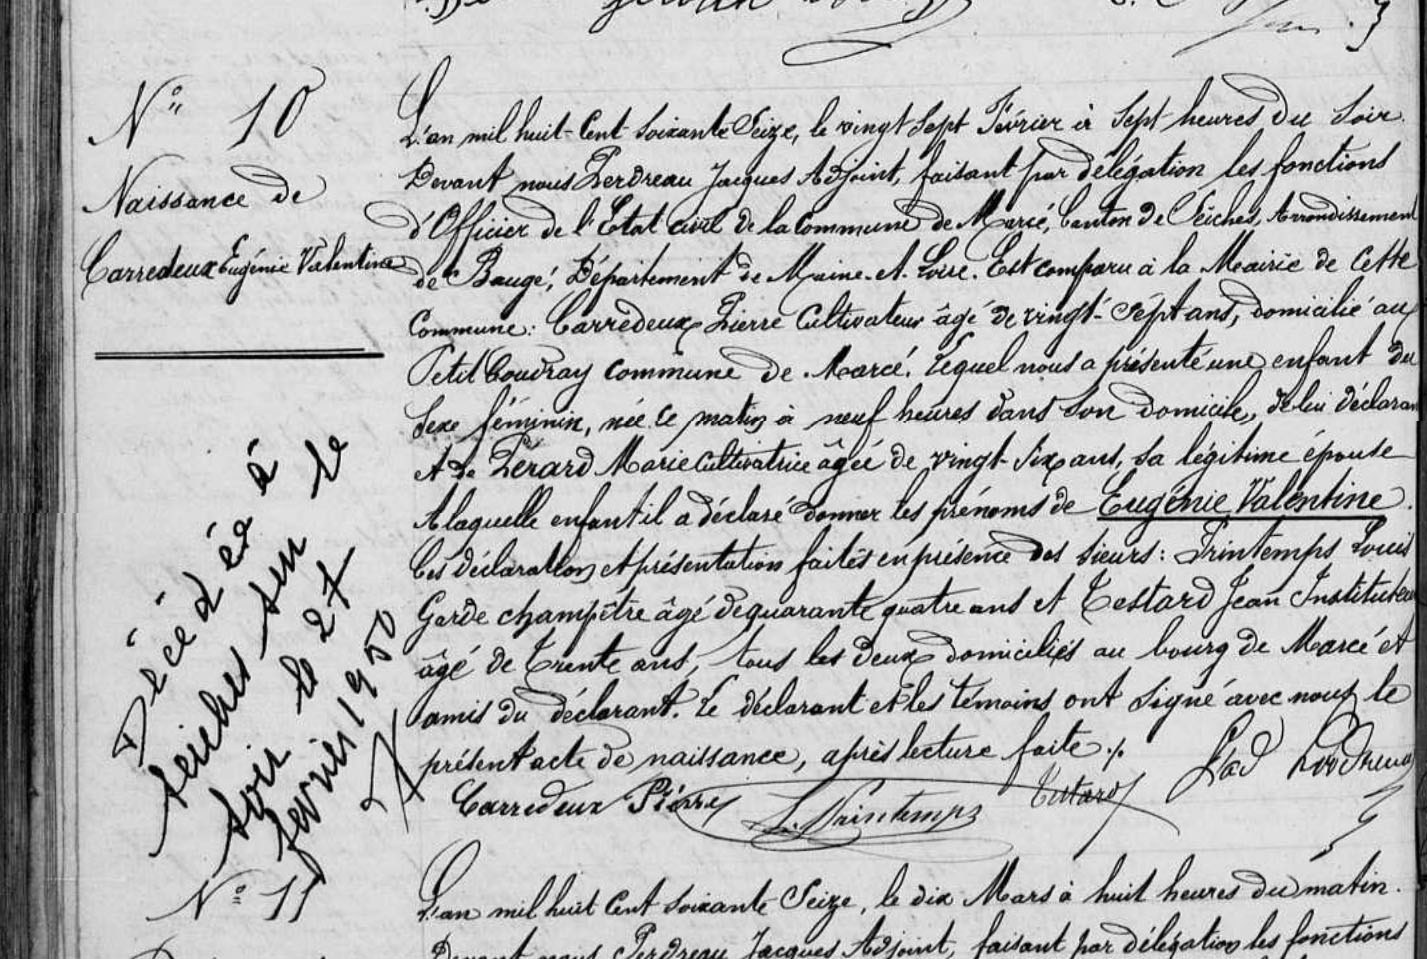 N° 10
Naissance de
Carredeux Eugénie Valentine
L'an mil huit-Cent soixante Seize, le vingt Sept Février à Sept heures du Soir.
Devant nous Perdreau Jacques Adjoint, faisant par délégation les fonctions
d'Officier de l'Etat civil de la Commune de Marcé, Canton de Seiches, Arrondissement
de Baugé, Département de Maine-et-Loire. Est comparu à la Mairie de Cette
Commune: Carredeux Pierre Cultivateur âgé de vingt-Sept ans, domicilié au
Petit Coudray commune de Marcé. Lequel nous a présenté une enfant du
Sexe féminin, née ce matin à neuf heures dans Son domicile, de lui déclarant
et de Pérard Marie Cultivatrice âgée de vingt-Six ans, sa légitime épouse
A laquelle enfant il a déclaré donner les prénoms de Eugénie Valentine.
Ces déclaration et présentation faites en présence des sieurs: Printemps Louis
Garde champêtre âgé de quarante quatre ans et Testard Jean Instituteur
âgé de Trente ans, tous les deux domiciliés au bourg de Marcé et
amis du déclarant. Le déclarant et les témoins ont Signé avec nous le
présent acte de naissance, après lecture faite ./.
Carredeux Pierre L. Printemps Testard
Décédée à
Seiches sur le
Loir le 27
février 1950
N° 11
L'an mil huit Cent soixante Seize, le dix Mars à huit heures du matin.
Devant nous Perdreau Jacques Adjoint, faisant par délégation les fonctions